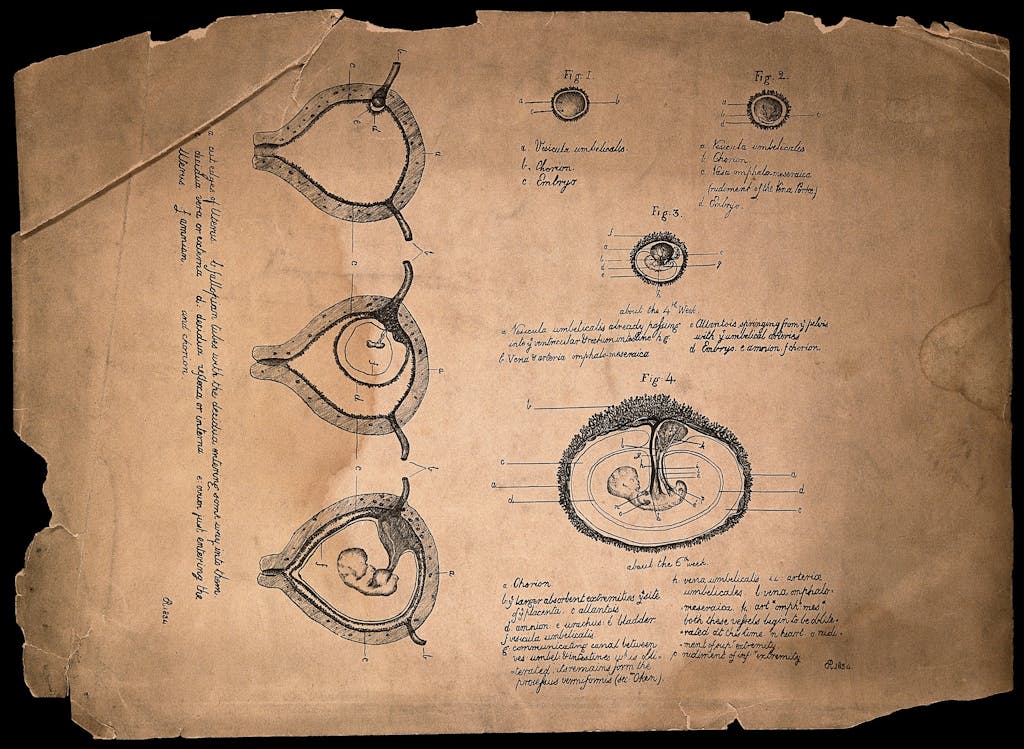 Fig. 1.
a b
c
a. Vesicula umbelicalis.
b. Chorion.
c. Embryo
Fig. 2.
a
b c
d
a. Vesicula umbelicalis
b. Chorion
c. Vasa omphalo-meseraica
(rudiment of the Vena Portæ)
d. Embryo.
Fig. 3.
f
a c
b g
d
e
h
about the 4th Week.
a Vesicula umbelicalis already passing
into ye ventricular & rectum intestine h g
b Vena & arteria omphalo-meseraica
c Allantois springing from ye pelvis
with ye umbelical arteries
d Embryo. e amnion. f chorion.
Fig. 4.
b
l k
c g
h i a
a
d f d
n c
about the 6th week.
a. Chorion
b ye larger absorbent extremities ye site
of ye placenta. c allantois
d. amnion. e urachus. bladder
f vesicula umbelicalis
g communicating canal between
ves: umbel: & intestines wh is obli-
-terated. its remains form the
processus vermiformis (sec. Oken).
h. vena umbelicalis ii. arteriæ
umbelicales l vena omphalo-
meseraica. k. art omph: mes
both these vessels begin to be oblite-
-rated at this time. n heart. o rudi-
-ment of supr extremity
p rudiment of infr extremity
R. 1834.
b
c
a
e d
b
c
a
f
d
b
c
a
f
b
c
a cut edges of Uterus b fallopian tubes with the decidua entering some way into them
c decidua vera or externa d. decidua reflexa or interna e. ovum just entering the
Uterus f amnion and chorion
R. 1834